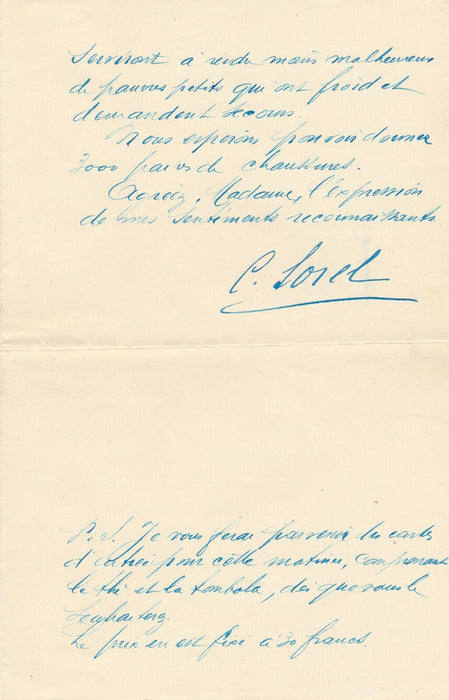 serviront à rendre moins malheureux
de pauvres petits qui ont froid et
demandent secours.
Nous espérons pouvoir donner
3000 paires de chaussures.
Agréez, Madame, l'expression
de mes sentiments reconnaissants
C. Sorel
P. S. Je vous ferai parvenir les cartes
d'entrée pour cette matinée, comprenant
le thé et la tombola, dès que vous le
souhaiterez.
Le prix en est fixé à 30 francs.